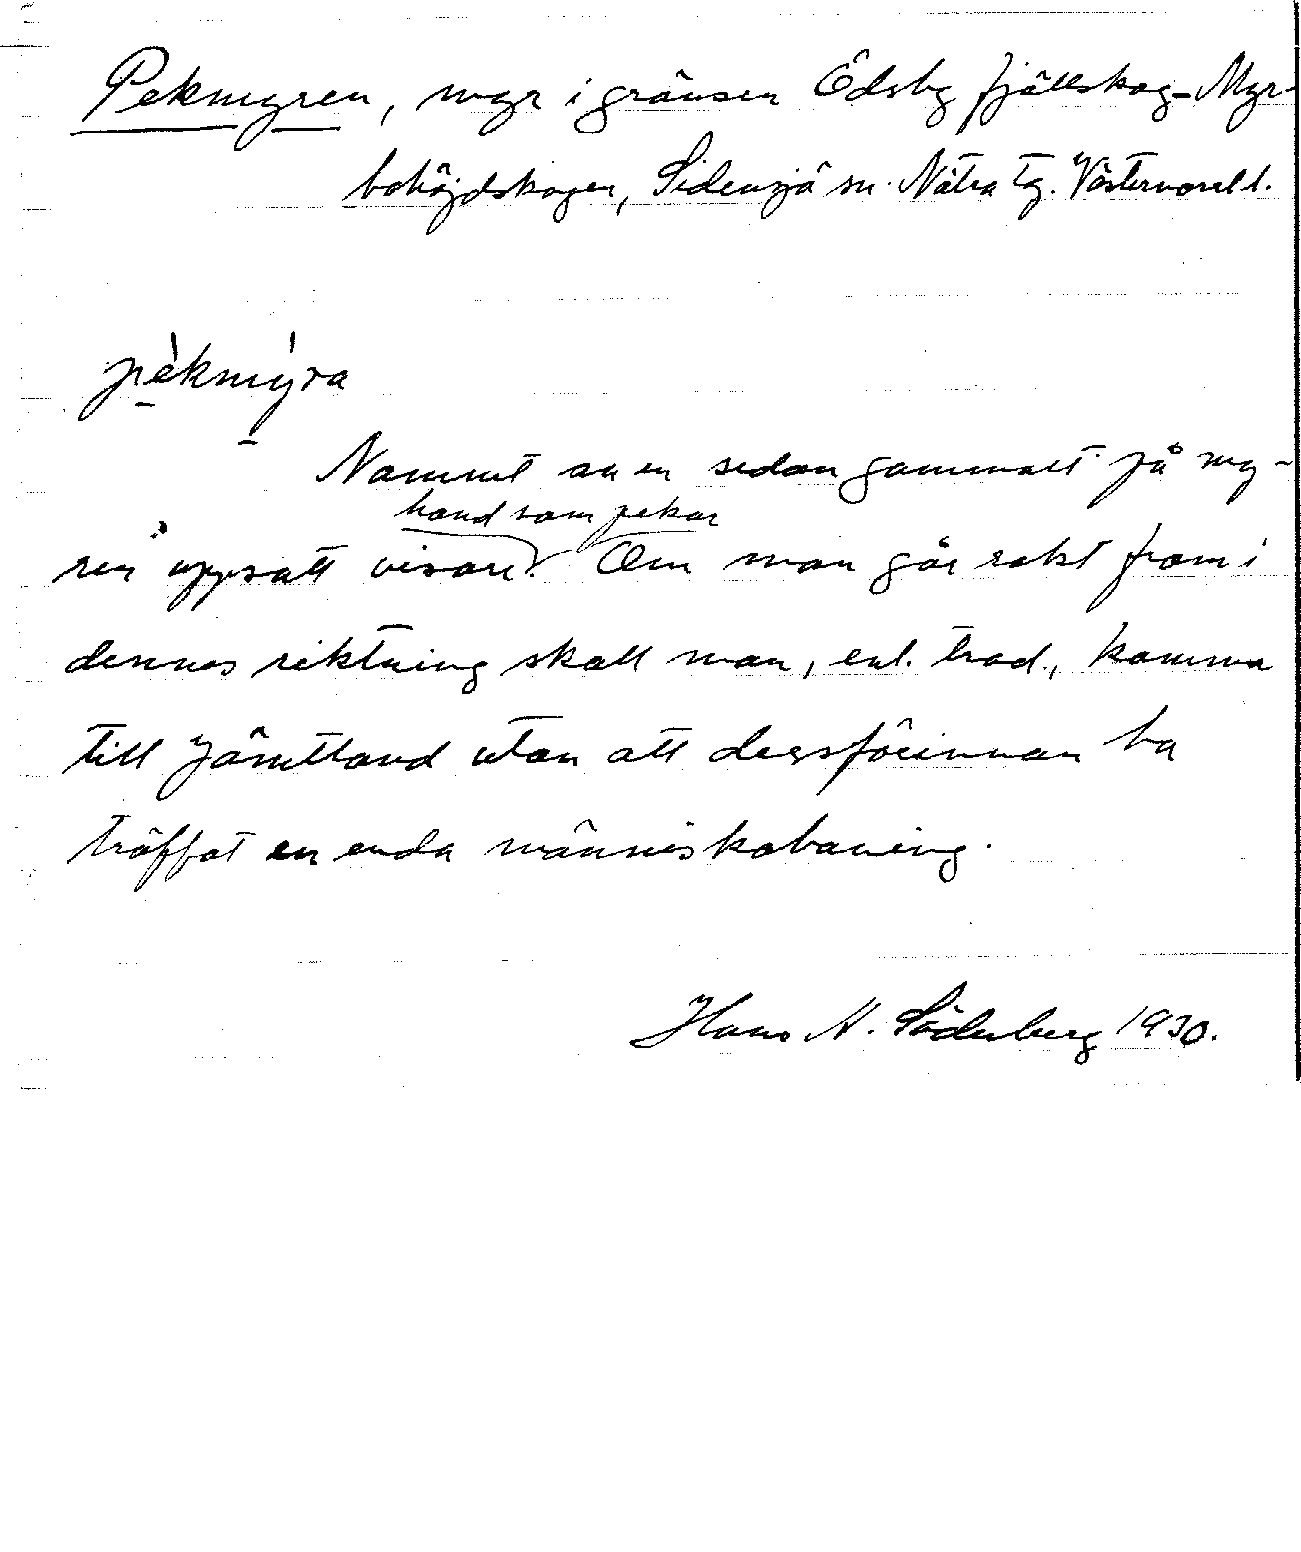 Pekmyren, myr i gränsen Ödsby fjällskog-Myr-
bohöjdskogen, Sidensjö sn. Nätra tg. Västernorrl l.
pekmyra
Namnet av en sedan gammalt på my-
ren uppsatt visare. Om man går rakt fram i
hand som pekar
dennes riktning skall man, enl. trad., komma
till Jämtland utan att dessförinnan ha
träffat en enda människoboning.
Hans N. Söderberg 1930.